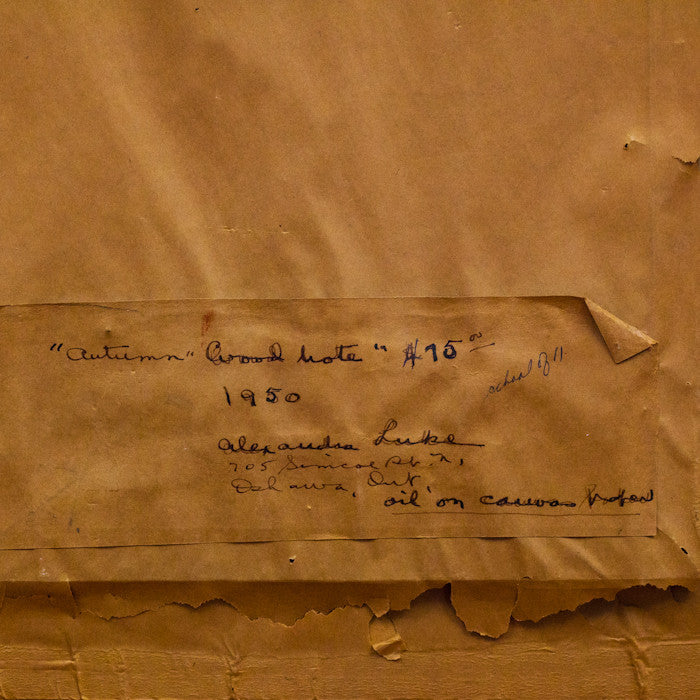 "Autumn" Wood Note" $75.00
school of 11
1950
Alexandra Luke
705 Simcoe St. N,
Oshawa, Ont.
oil on canvas